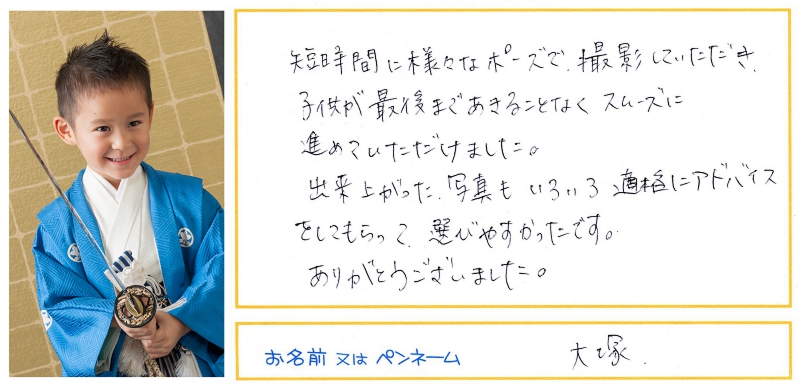 短時間に様々なポーズで、撮影していただき、
子供が最後まであきることなくスムーズに
進めていただけました。
出来上がった、写真も いろいろ 適格にアドバイス
をしてもらって、選びやすかったです。
ありがとうございました。
お名前 又は ペンネーム
大塚.